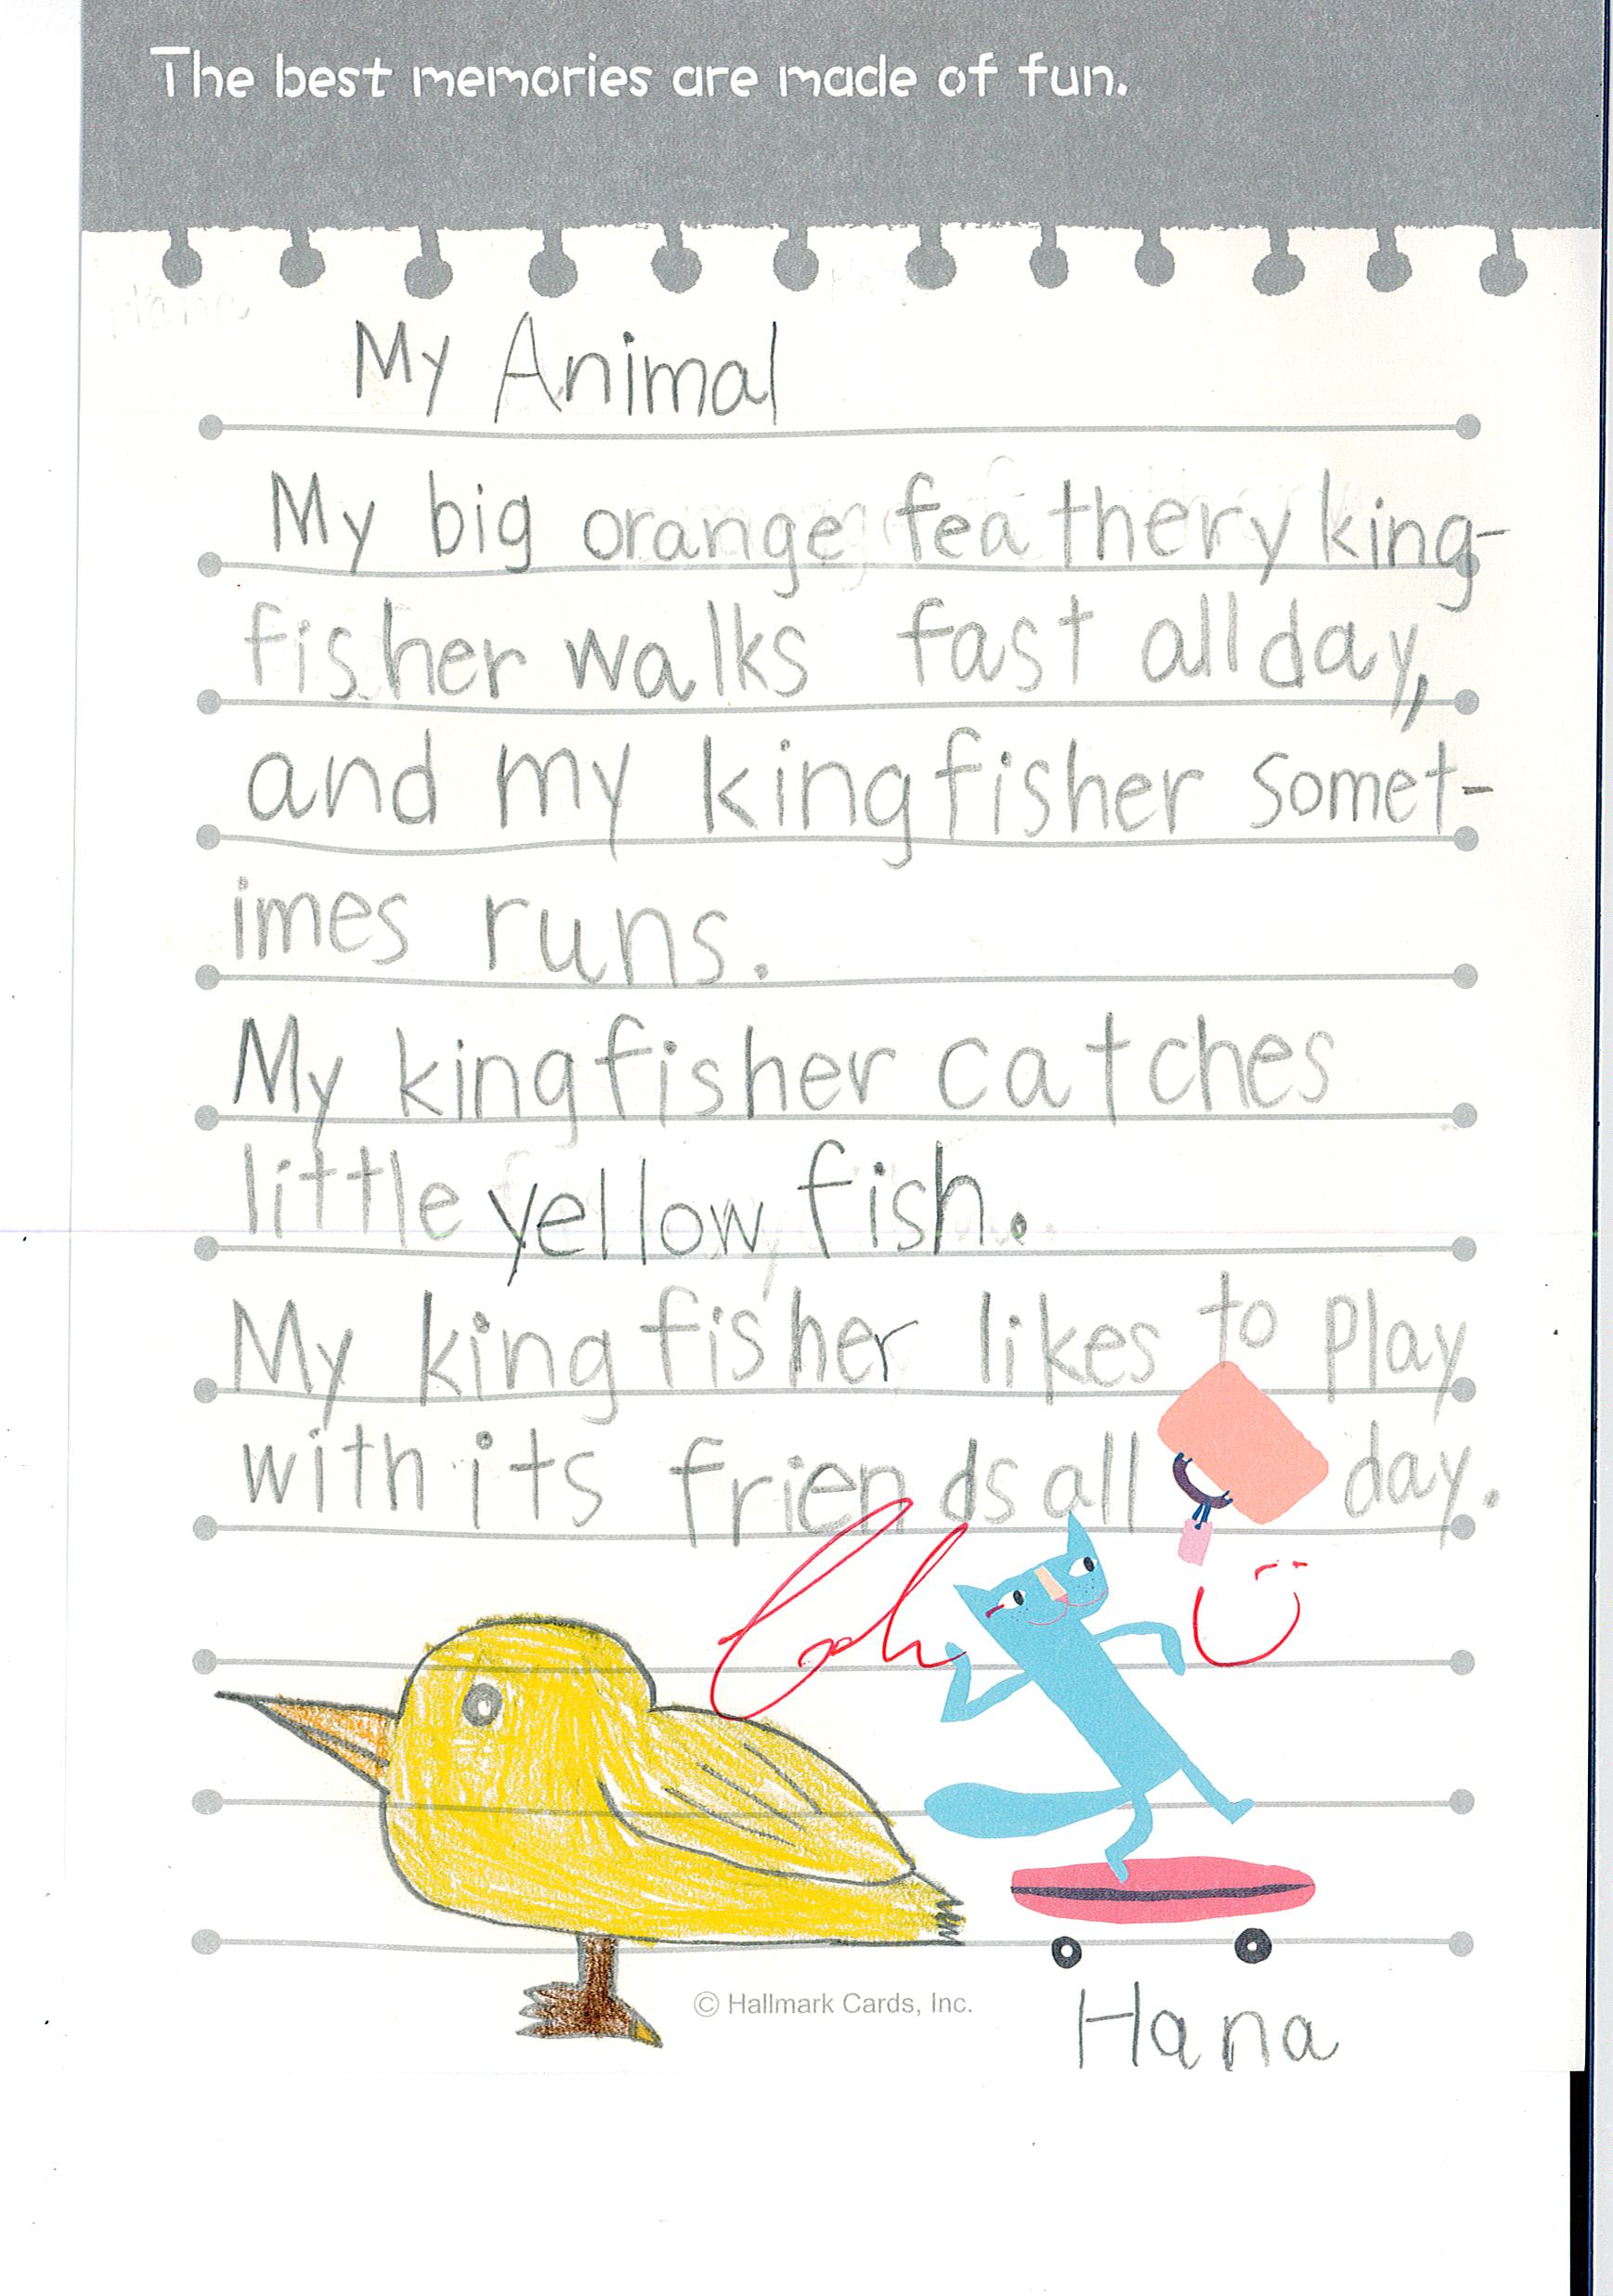 The best memories are made of fun.
Hana
My Animal
My big orange feathery king-
fisher walks fast all day,
and my kingfisher somet-
imes runs.
My kingfisher catches
little yellow fish.
My kingfisher likes to play
with its friends all day.
© Hallmark Cards, Inc.
Hana